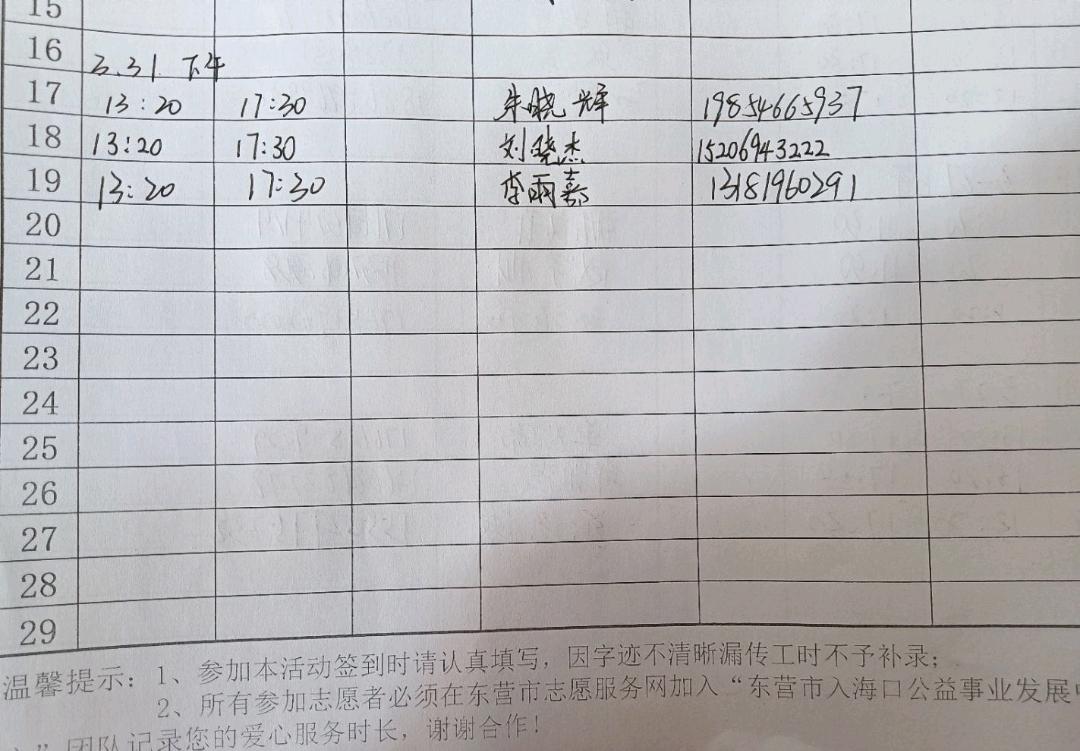 15
16
3.31 下午
17 13:20 17:30 朱晓辉 19854665937
18 13:20 17:30 刘晓杰 15206943222
19 13:20 17:30 李雨嘉 13181960291
20
21
22
23
24
25
26
27
28
29
温馨提示：1、参加本活动签到时请认真填写，因字迹不清晰漏传工时不予补录；
2、所有参加志愿者必须在东营市志愿服务网加入“东营市入海口公益事业发展中
”团队记录您的爱心服务时长，谢谢合作！